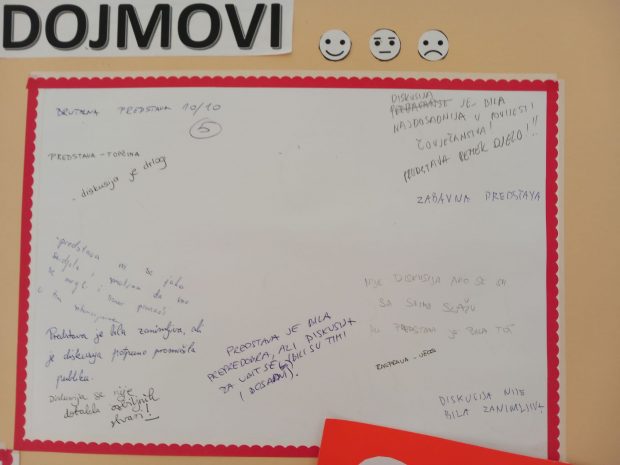 DOJMOVI
BRUTALNA PREDSTAVA 10/10
5
DISKUSIJA
JE BILA
NAJDOSADNIJA U POVIJESTI
ČOVJEČANSTVA!
PREDSTAVA REMEK DJELO!!!
PREDSTAVA - TOPČINA
- diskusija je drlog
ZABAVNA PREDSTAVA
- predstava mi se jako
svidjela i mislim da
se mogli i
o tim
Predstava je bila zanimljiva, ali
je diskusija potpuno promašila
publiku.
Diskusija se nije
dotakla ozbiljnih
stvari!
PREDSTAVA JE BILA
PREPREDOBRA, ALI DISKUSIJA
ZA UBIT SE (BILI SU TIHI
I DOSADNI).
Nije DISKUSIJA AKO SE SVI
SA SVIME SLAŽU
PREDSTAVA JE BILA TOP
RASPRAVA - UŽAS
DISKUSIJA NIJE
BILA ZANIMLJIVA